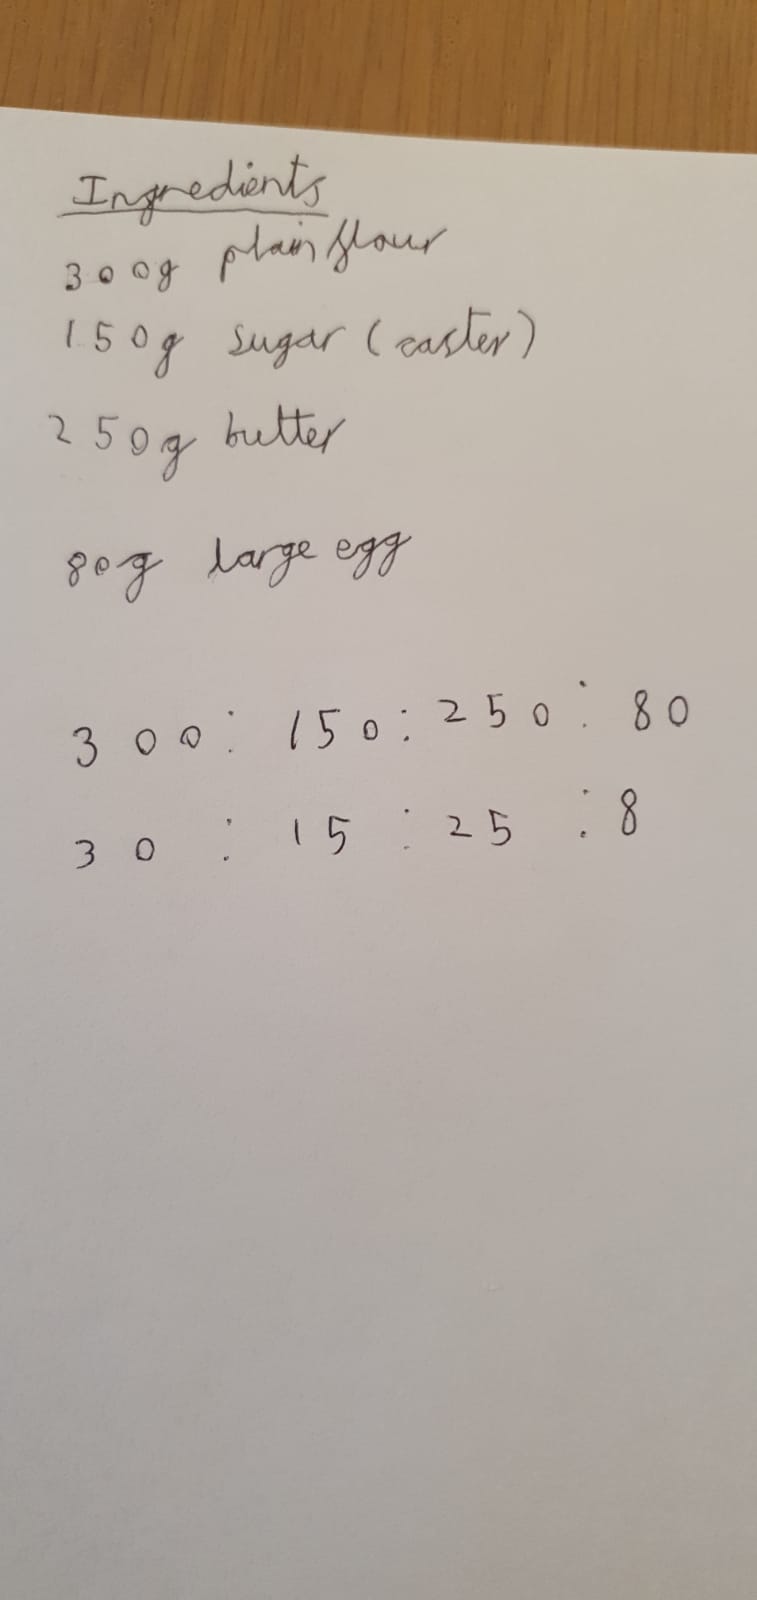 Ingredients
300g plain flour
150g sugar (caster)
250g butter
80g large egg
300 : 150 : 250 : 80
30 : 15 : 25 : 8